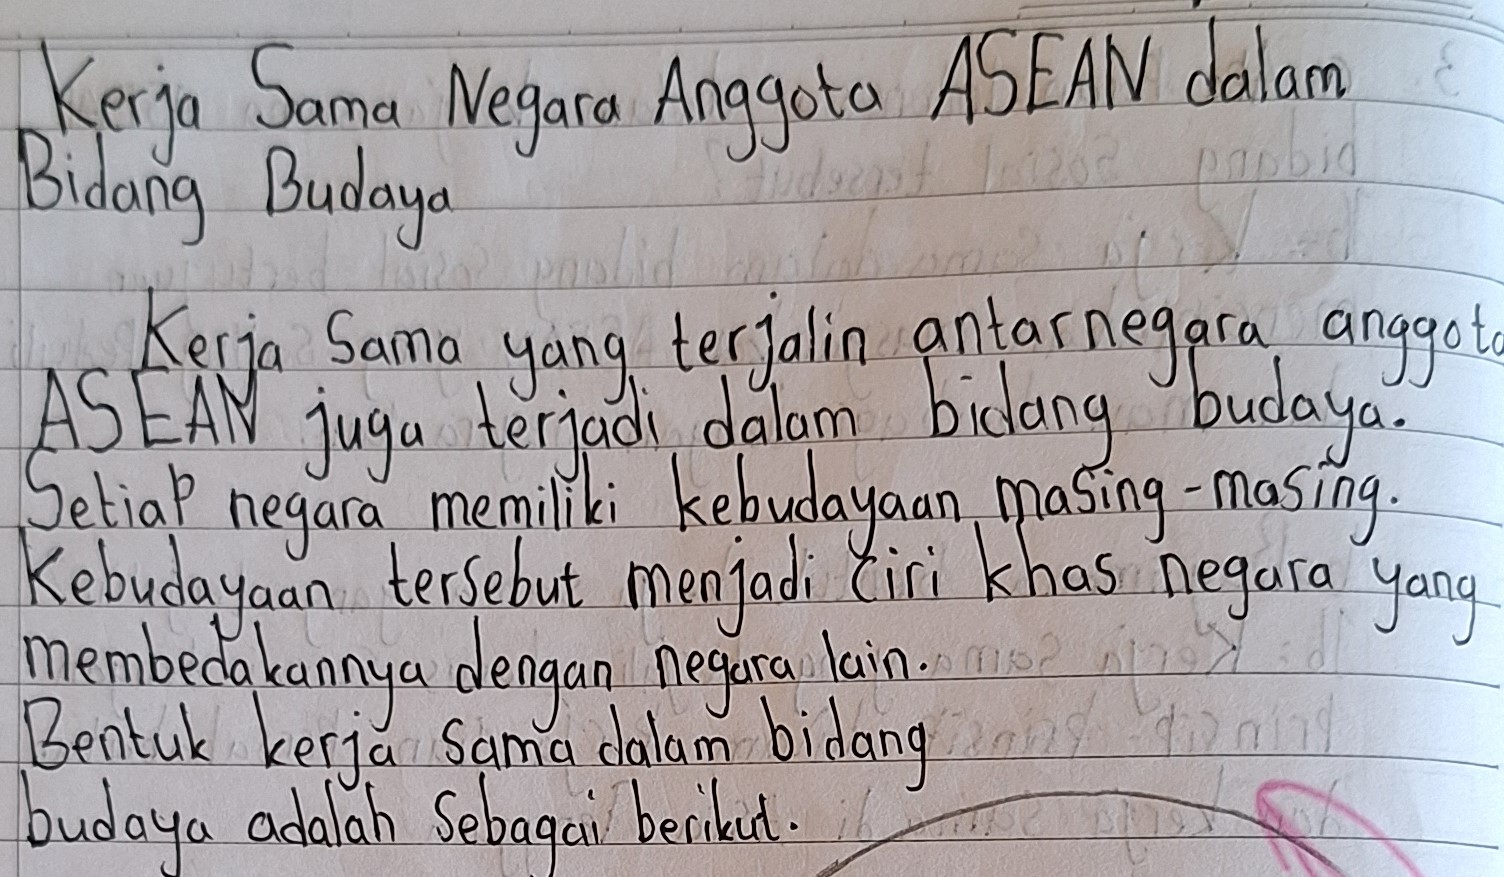 Kerja Sama Negara Anggota ASEAN dalam
Bidang Budaya
Kerja Sama yang terjalin antarnegara anggota
ASEAN juga terjadi dalam bidang budaya.
Setiap negara memiliki kebudayaan masing-masing.
Kebudayaan tersebut menjadi ciri khas negara yang
membedakannya dengan negara lain.
Bentuk kerja Sama dalam bidang
budaya adalah Sebagai berikut.